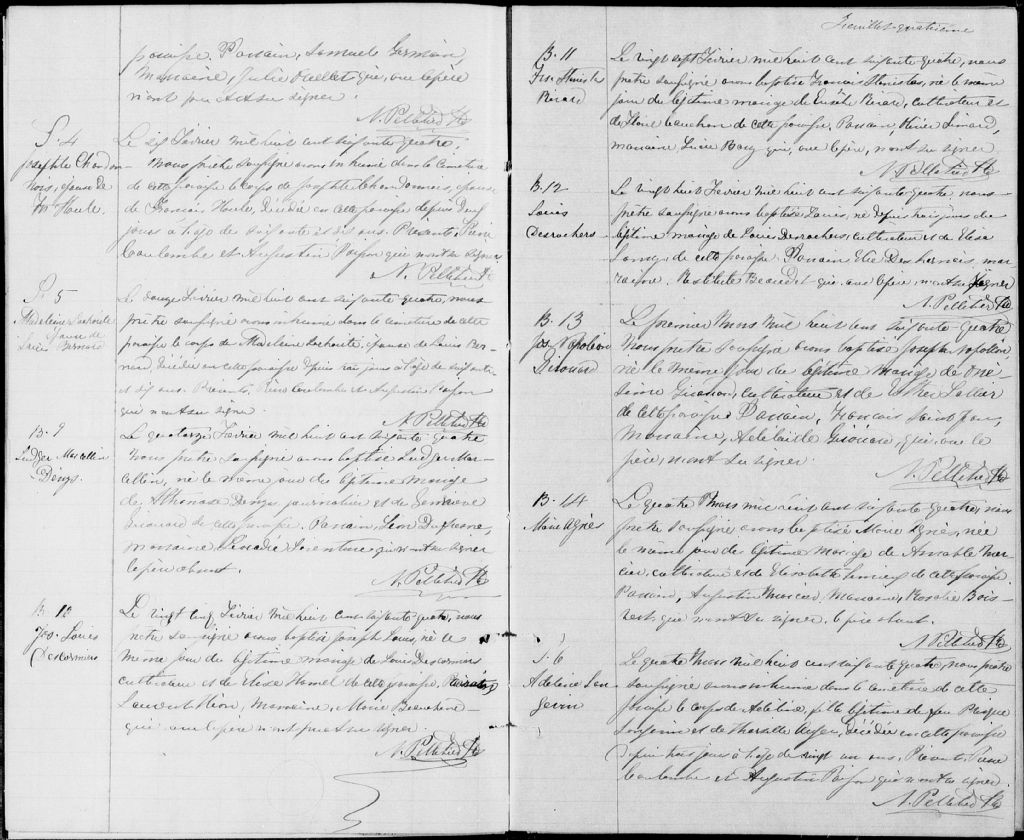 paroisse. Parrain, Samuel Germain,
Marraine, Julie Ouellet qui, ou le père
n'ont pu signer.
N. Pelletier Ptre
S. 4
Josephte Chandon
nois, épouse de
Frs Houle.
Le six Février mil huit cent soixante quatre,
nous prêtre soussigné avons inhumé dans le cimetière
de cette paroisse le corps de Josephte Chandonnois, épouse
de François Houle, décédée en cette paroisse depuis deux
jours à l'age de soixante et dix ans. Présents, Pierre
Coulombe et Augustin Poisson qui n'ont su signer
N. Pelletier Ptre
S. 5
Madeleine Lachouté
épouse de
Louis Bernard
Le douze Février mil huit cent soixante quatre, nous
prêtre soussigné avons inhumé dans le cimetière de cette
paroisse le corps de Madeleine Lachouté, épouse de Louis Ber-
nard, décédée en cette paroisse depuis trois jours à l'age de soixante
et dix ans. Présents, Pierre Coulombe et Augustin Poisson
qui n'ont su signer.
N. Pelletier Ptre
B. 9
Ludger Marcellin
Denys.
Le quatorze Février mil huit cent soixante quatre
nous prêtre soussigné avons baptisé Ludger Mar-
cellin, né le même jour du légitime mariage
de Athanase Denys journalier et de Geneviève
Girouard de cette paroisse. Parrain, Léon Dufresne,
marraine, Léocadie Laventure qui n'ont su signer
le père absent.
N. Pelletier Ptre
B. 10
Jos. Louis
Descormiers
Le vingt cinq Février mil huit cent soixante quatre, nous
prêtre soussigné avons baptisé Joseph Louis, né le
même jour du légitime mariage de Louis Descormiers
cultivateur et de Elise Hamel de cette paroisse.
Laurent Lion, Marraine, Marie Beauchene
qui ou le père n'ont pu su signer.
N. Pelletier Ptre
Feuillet quatrième
B. 11
Frs Stanislas
Picard
Le vingt sept Février mil huit cent soixante quatre, nous
prêtre soussigné avons baptisé François Stanislas, né le même
jour du légitime mariage de Eusèbe Picard, cultivateur et
de Marie Cauchon de cette paroisse. Parrain, Olivier Simard,
marraine Luce Bourg qui, ou le père, n'ont su signer
N. Pelletier Ptre
B. 12
Louis
Desrochers
Le vingt huit Février mil huit cent soixante quatre nous
prêtre soussigné avons baptisé Louis, né depuis trois jours du
légitime mariage de Louis Desrochers, cultivateur et de Elisa
de cette paroisse. Parrain Elie Desharnais mar-
raine, Restitute Beaudet qui, ou le père, n'ont su signer
N. Pelletier Ptre
B. 13
Jos. Napoléon
Girouard
Le premier Mars mil huit cent soixante quatre
nous prêtre soussigné avons baptisé Joseph Napoléon,
né le même jour du légitime mariage de One-
sime Girouard, cultivateur et de Esther Cellier
de cette paroisse Parrain, François Saint Jean,
Marraine, Adelaïde Girouard, qui, ou le
père, n'ont su signer.
N. Pelletier Ptre
B. 14
Marie Agnès
Le quatre Mars mil huit cent soixante quatre, nous
prêtre soussigné avons baptisé Marie Agnès, née
le même jour du légitime mariage de Amable Mer-
cier, cultivateur et de Elisabeth Lemieux de cette paroisse
Parrain, Augustin Mercier, Marraine, Rosalie Bois-
vert, qui n'ont su signer, le père absent.
N. Pelletier Ptre
S. 6
Adeline Lan
gevin
Le quatre Mars mil huit cent soixante quatre, nous prêtre
soussigné avons inhumé dans le cimetière de cette
paroisse le corps de Adeline, fille légitime de feu Pasque
Langevin et de Tharsille Auger, décédée en cette paroisse
depuis trois jours à l'age de vingt un ans. Présents, Pierre
Coulombe et Augustin Poisson qui n'ont su signer
N. Pelletier Ptre